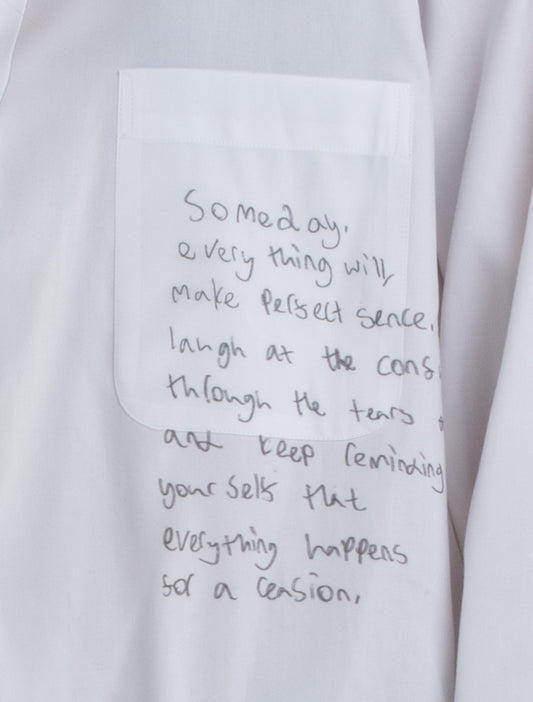 Someday.
every thing will
make perfect sence.
laugh at the
through the tears
and keep reminding
your self that
everything happens
for a reasion.